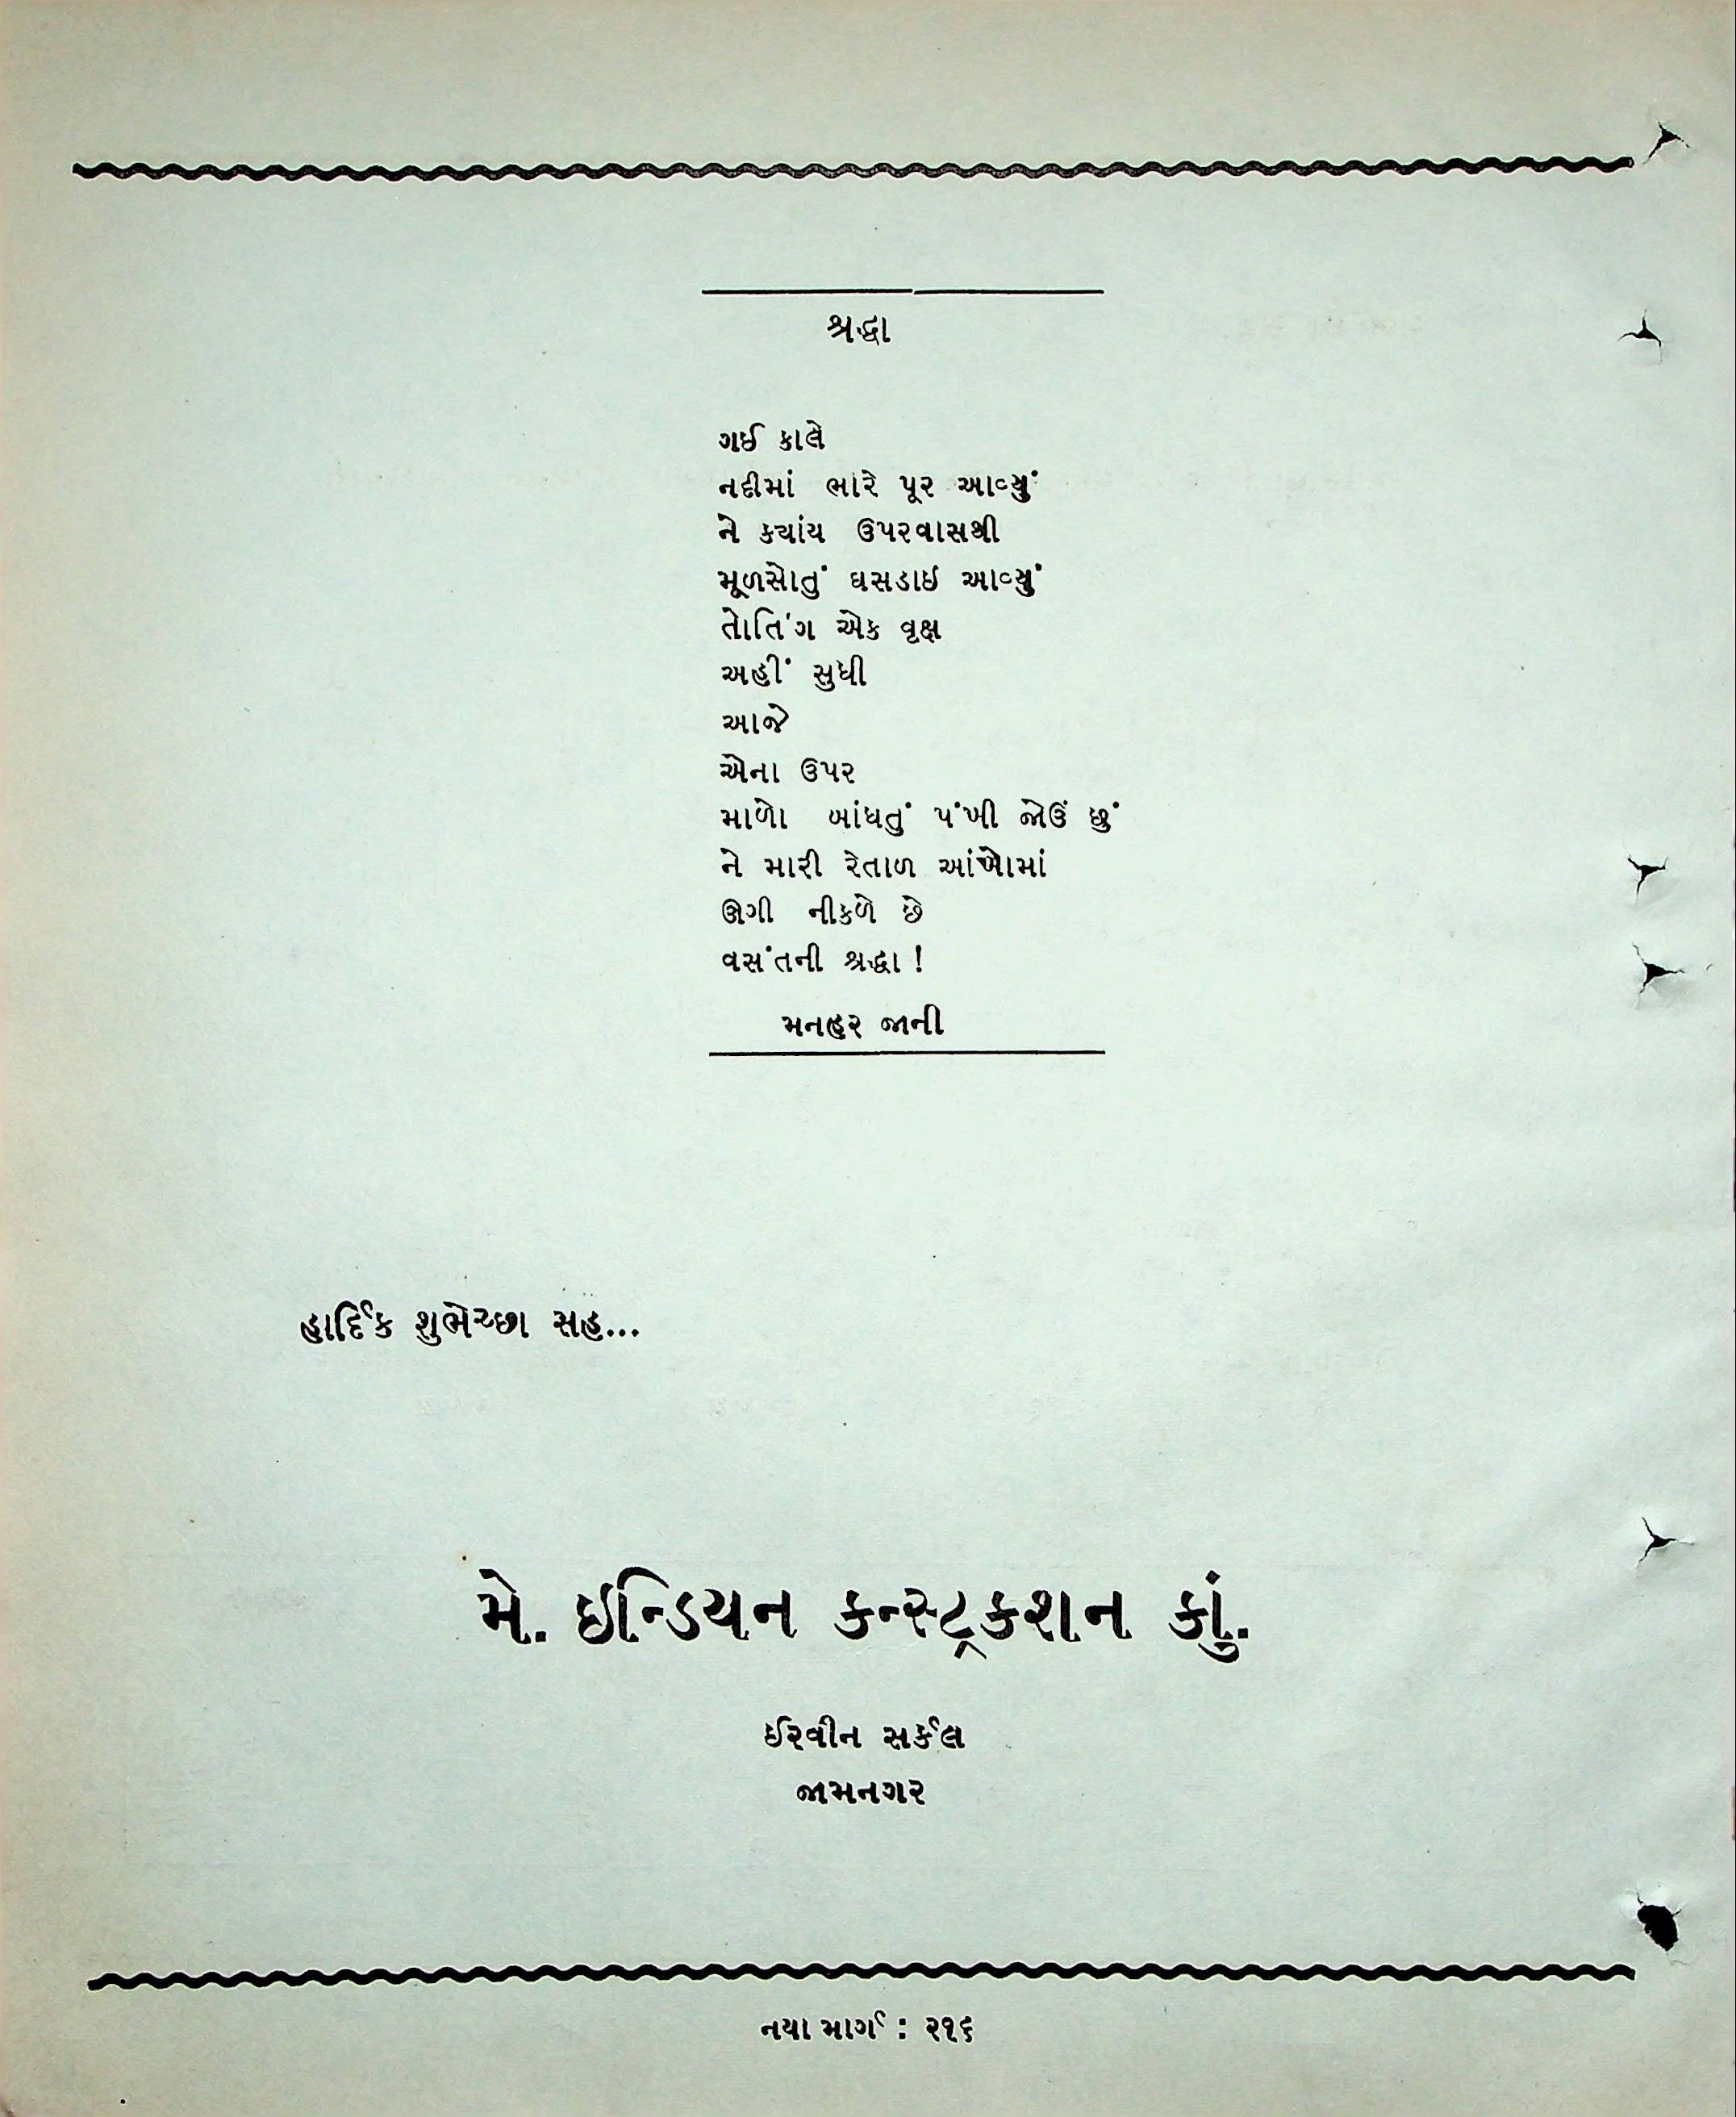 શ્રદ્ધા
ગઈ કાલે
નદીમાં ભારે પૂર આવ્યું
ને ક્યાંય ઉપરવાસથી
મૂળસોતું ઘસડાઇ આવ્યું
તોતિંગ એક વૃક્ષ
અહીં સુધી
આજે
એના ઉપર
માળો બાંધતું પંખી જોઉં છું
ને મારી રેતાળ આંખોમાં
ઊગી નીકળે છે
વસંતની શ્રદ્ધા !
મનહર જાની
હાર્દિક શુભેચ્છા સહ...
મે. ઇન્ડિયન કન્સ્ટ્રકશન કું.
ઈરવીન સર્કલ
જામનગર
નયા માર્ગ : ૨૧૬